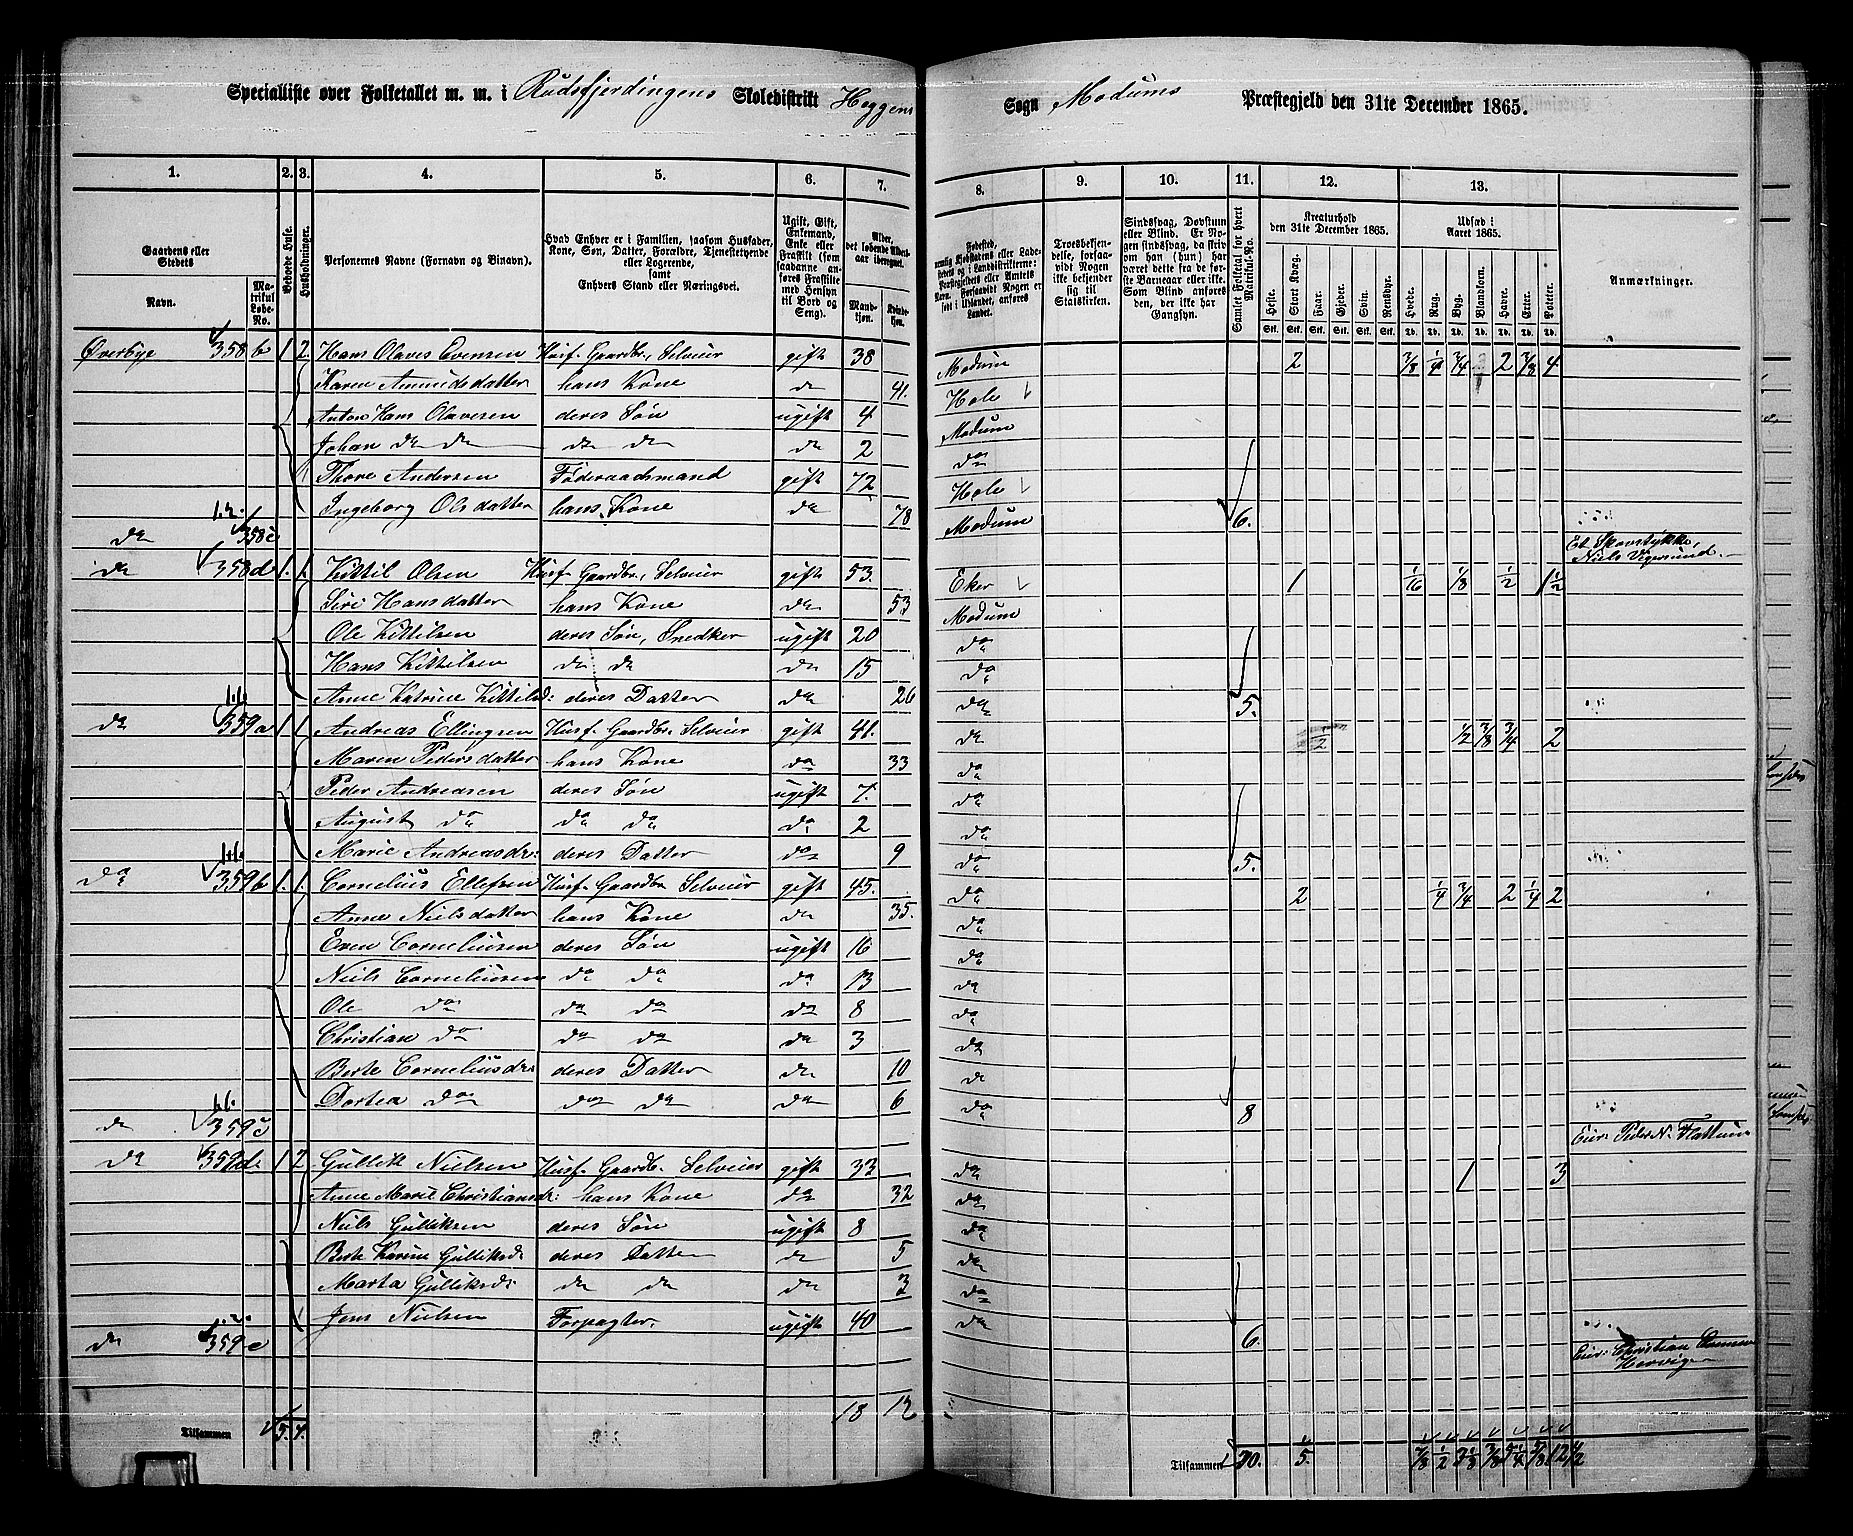 Specialliste over Folketallet m. m. i Rudsfjerdingens Skoledistrikt Heggens Sogn Modums Præstegjeld den 31te December 1865.
1. 2. 3. 4. 5. 6. 7. 8. 9. 10. 11. 12. 13.
Gaardens eller Stedets
Navn.
Matrikul Løbe-No.
Beboede Huse.
Husholdninger.
Personernes Navne (Fornavn og Binavn).
Hvad Enhver er i Familien, saasom Husfader, Kone, Søn, Datter, Forældre, Tjenestetyende eller Logerende, samt Enhvers Stand eller Næringsvei.
Ugift, Gift, Enkemand, Enke eller Fraskilt (som saadanne anføres Fraskilte med Hensyn til Bord og Seng).
Alder, det løbende Aldersaar iberegnet.
Mandkjøn. Kvindekjøn.
Fødested, nemlig Kjøbstadens eller Ladestedets og i Landdistrikterne: Præstegjeldets eller Amtets Navn. Forsaavidt Nogen er født i Udlandet, anføres Landet.
Troesbekjendelse, forsaavidt Nogen ikke bekjender sig til Statskirken.
Sindssvag, Døvstum eller Blind. Er Nogen sindssvag, da skriv om han (hun) har været dette fra de første Barneaar eller ikke. Som Blind anføres den, der ikke har Gangsyn.
Samlet Folketal for hvert Matrikul-No.
Kreaturhold den 31te December 1865.
Heste. Stort Kvæg. Faar. Gjeder. Svin. Rensdyr.
Udsæd i Aaret 1865.
Hvede. Rug. Byg. Blandkorn. Havre. Erter. Poteter.
Anmærkninger.
Øverbye 358 b 1 2 Hans Olaves Evensen Husf. Gaardbr. Selveier gift 38 Modum 2 3/8 1/4 3/4 2 3/8 4
Karen Amundsdatter hans Kone do 41. Hole
Anton Hans Olavesen deres Søn ugift 4 Modum
Johan do do do do do 2 do
Thore Andersen Føderaadsmand gift 72 Hole
Ingeborg Olsdatter hans Kone do 78 Modum 6.
do 358 c Et Skovstykke, Niels Vigersund.
do 358 d 1. 1. Kittil Olsen Husf. Gaardbr. Selveier gift 53. Eker 1 1/16 1/8 1/2 1 1/2
Siri Hansdatter hans Kone do 53 Modum
Ole Kittilsen deres Søn, Snedker ugift 20 do
Hans Kittilsen do do do 15 do
Anne Katrine Kittilsd: deres Datter do 26 do 5.
do 359 a 1 1 Andreas Ellingsen Husf. Gaardbr. Selveier gift 41. do 2 1/2 3/8 3/4 2
Maren Pedersdatter hans Kone do 33 do
Peder Andreasen deres Søn ugift 7. do
August do do do do 2 do
Marie Andreasdr: deres Datter do 9 do 5.
do 359 b 1. 1. Cornelius Ellefsen Husf. Gaardbr. Selveier gift 45. do 2 1/4 3/4 2 1/4 2
Anne Nielsdatter hans Kone do 35. do
Even Corneliusen deres Søn ugift 16 do
Niels Corneliusen do do do 13 do
Ole do do do do 8 do
Christian do do do do 3 do
Berte Corneliusdr: deres Datter do 10 do
Dortea do do do do 6 do 8
do 359 c Eier: Peder N. Flattum
do 359 d. 1 2 Gullik Nielsen Husf. Gaardbr. Selveier gift 33 do 1 3
Anne Marie Christiansdr: hans Kone do 32 do
Niels Gulliksen deres Søn ugift 8 do
Berte Karine Gulliksd: deres Datter do 5 do
Marta Gulliksd: do do do 3 do
Jens Nielsen Forpagter. ugift 40 do 6.
do 359 e Eier: Christian
Tilsammen 5. 7. 18 12
Tilsammen 30. 5. 7/8 1/2 3 1/8 3/8 5 1/4 5/8 12 1/2